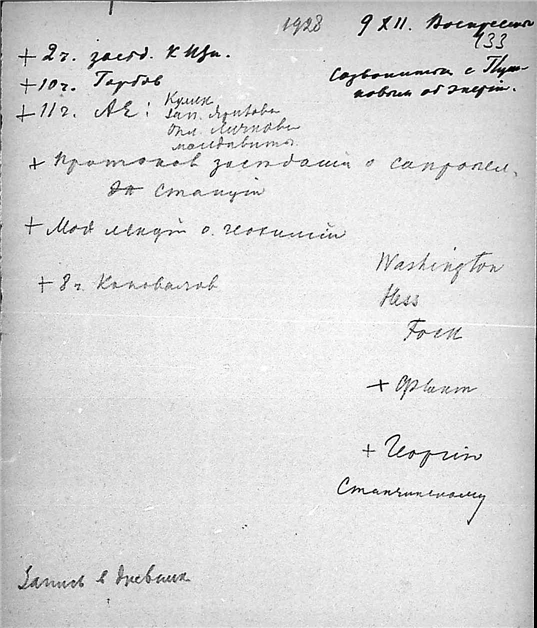 1928 9 XII. Воскресенье
133
+ 2 ч. засед. К
+ 10 ч. Горбов
+ 11 ч. АЕ:
Кулик
Зап.
Опл. Личкова
молдавиты
Созвониться с
ковым об энергии.
+ Протоков заседаний о сапропел.
станции
+ Мод лекций о геохимии
+ 8 ч. Коновалов
Washington
Hess
+ Георгию
Станчинскому
Запись в дневник